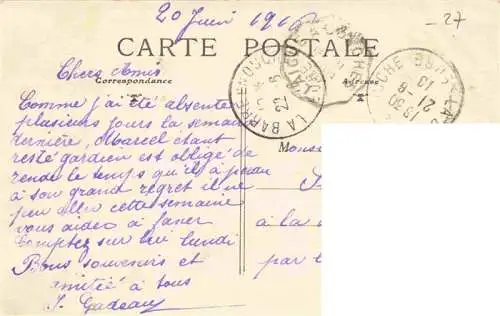 20 Juin 191
- 27
CARTE POSTALE
Correspondance
Adresse
Chers Amis
Comme j'ai été absente
plusieurs jours la semaine
dernière, Marcel étant
resté gardien est obligé de
rendre le temps qu'il à peau
à son grand regret il ne
peu aller cette semaine
vous aider à faner
Comptez sur lui lundi
Bons souvenirs et
amitié à tous
J. Gadeau
LA BARRE
Monsieur
à la
par